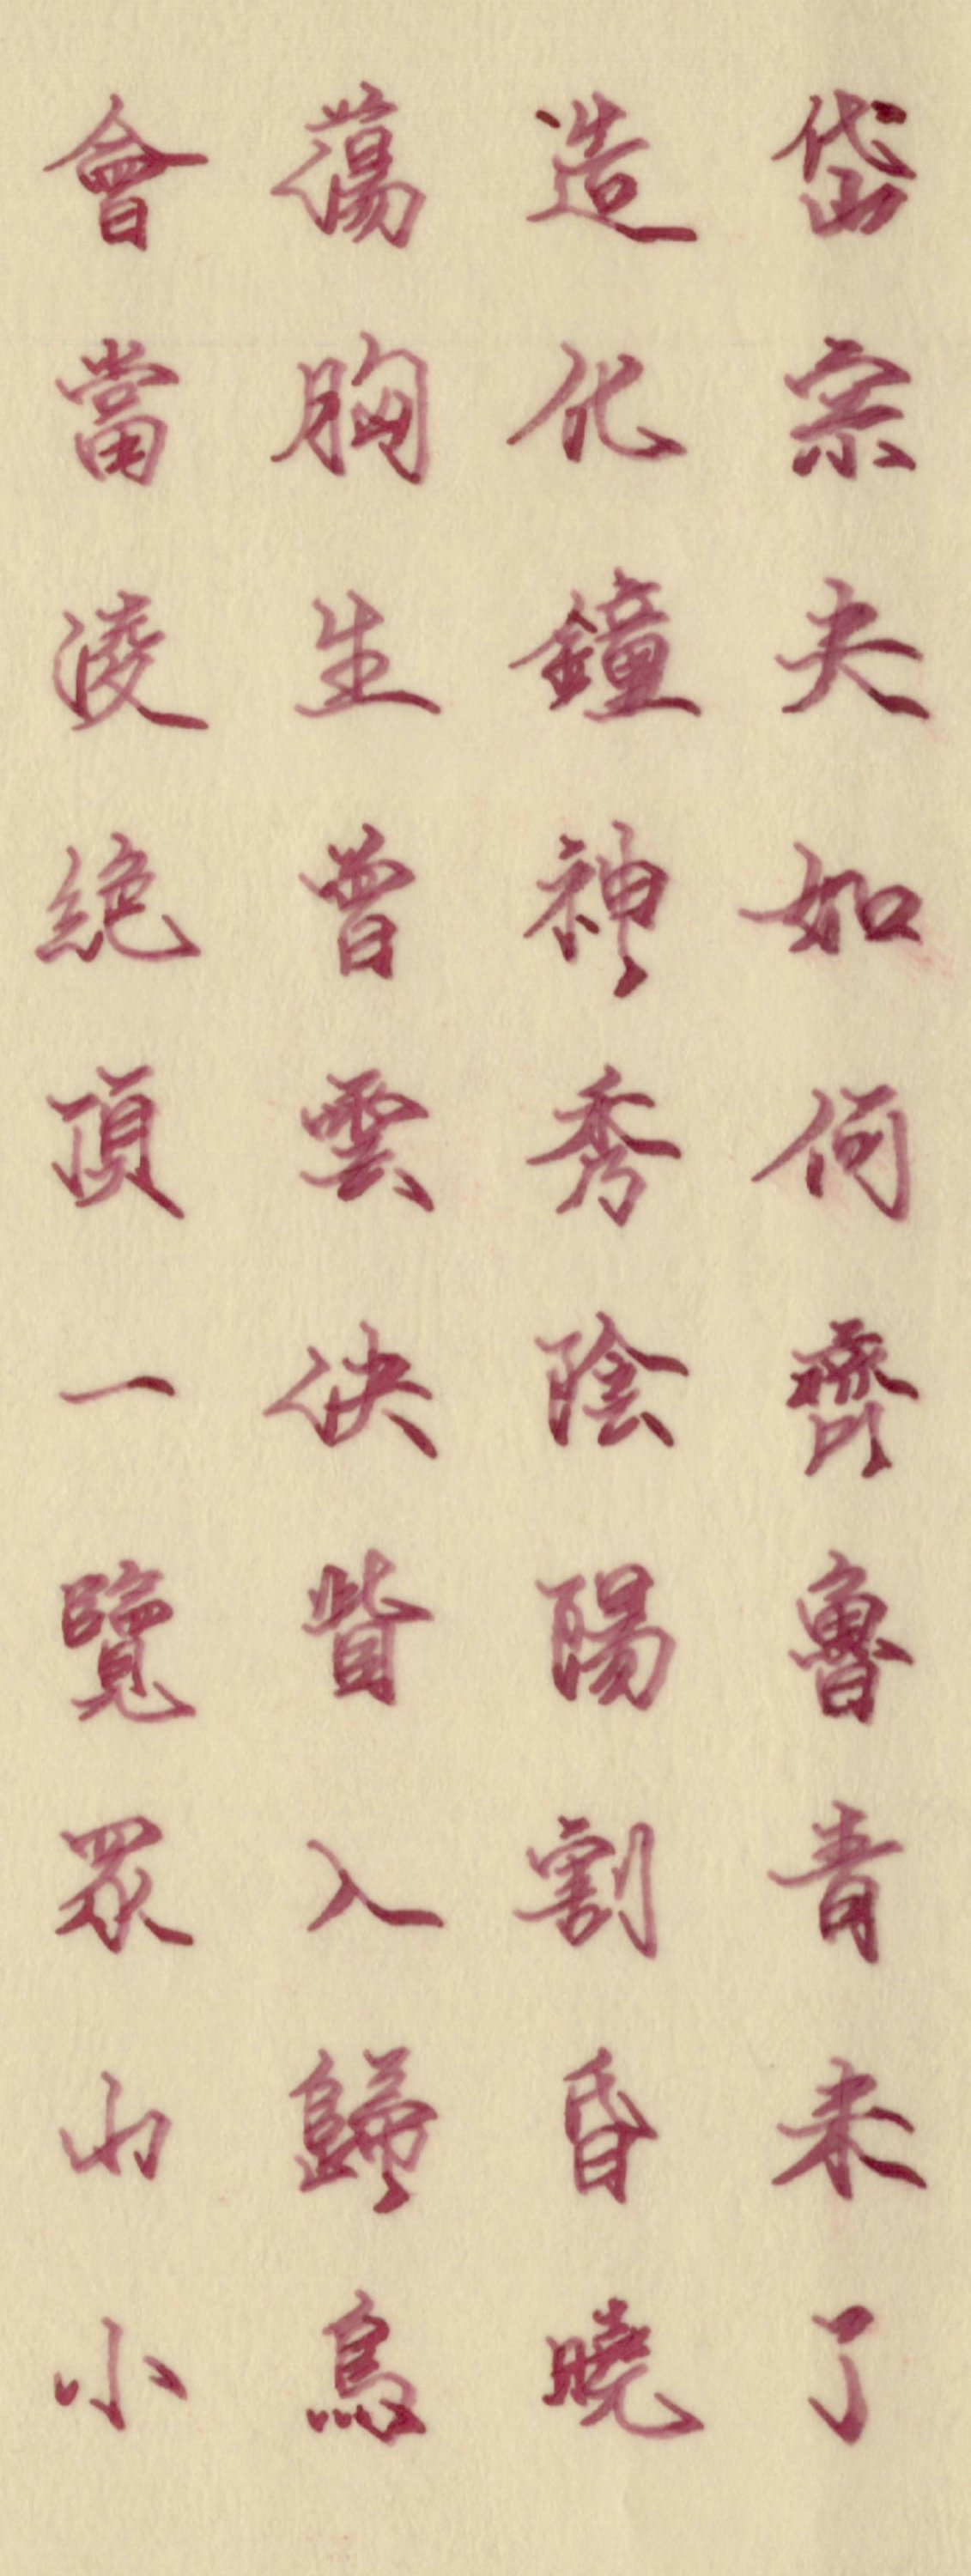 岱宗夫如何齊魯青未了
造化鐘神秀陰陽割昏曉
蕩胸生曾雲決眥入歸鳥
會當淩絕頂一覽眾山小